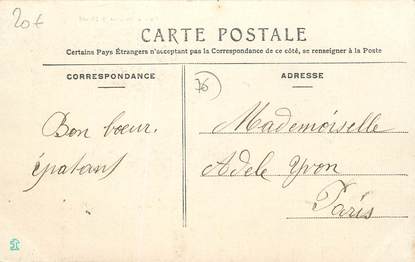 20€
CARTE POSTALE
Certains Pays Étrangers n'acceptant pas la Correspondance de ce côté, se renseigner à la Poste
CORRESPONDANCE
ADRESSE
76
Bon bœur.
épatant
Mademoiselle
Adele Yvon
Paris